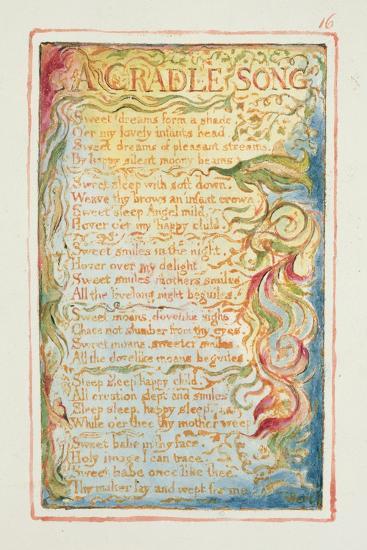 16
A CRADLE SONG
Sweet dreams form a shade
O'er my lovely infants head.
Sweet dreams of pleasant streams.
By happy silent moony beams
Sweet sleep with soft down.
Weave thy brows an infant crown
Sweet sleep Angel mild,
Hover oer my happy child.
Sweet smiles in the night,
Hover over my delight.
Sweet smiles mothers smiles
All the livelong night beguiles.
Sweet moans, dovelike sighs
Chace not slumber from thy eyes.
Sweet moans, sweeter smiles.
All the dovelike moans beguiles.
Sleep sleep happy child.
All creation slept and smil'd.
Sleep sleep, happy sleep,
While oer thee thy mother weep
Sweet babe in thy face,
Holy image I can trace.
Sweet babe once like thee
Thy maker lay and wept for me